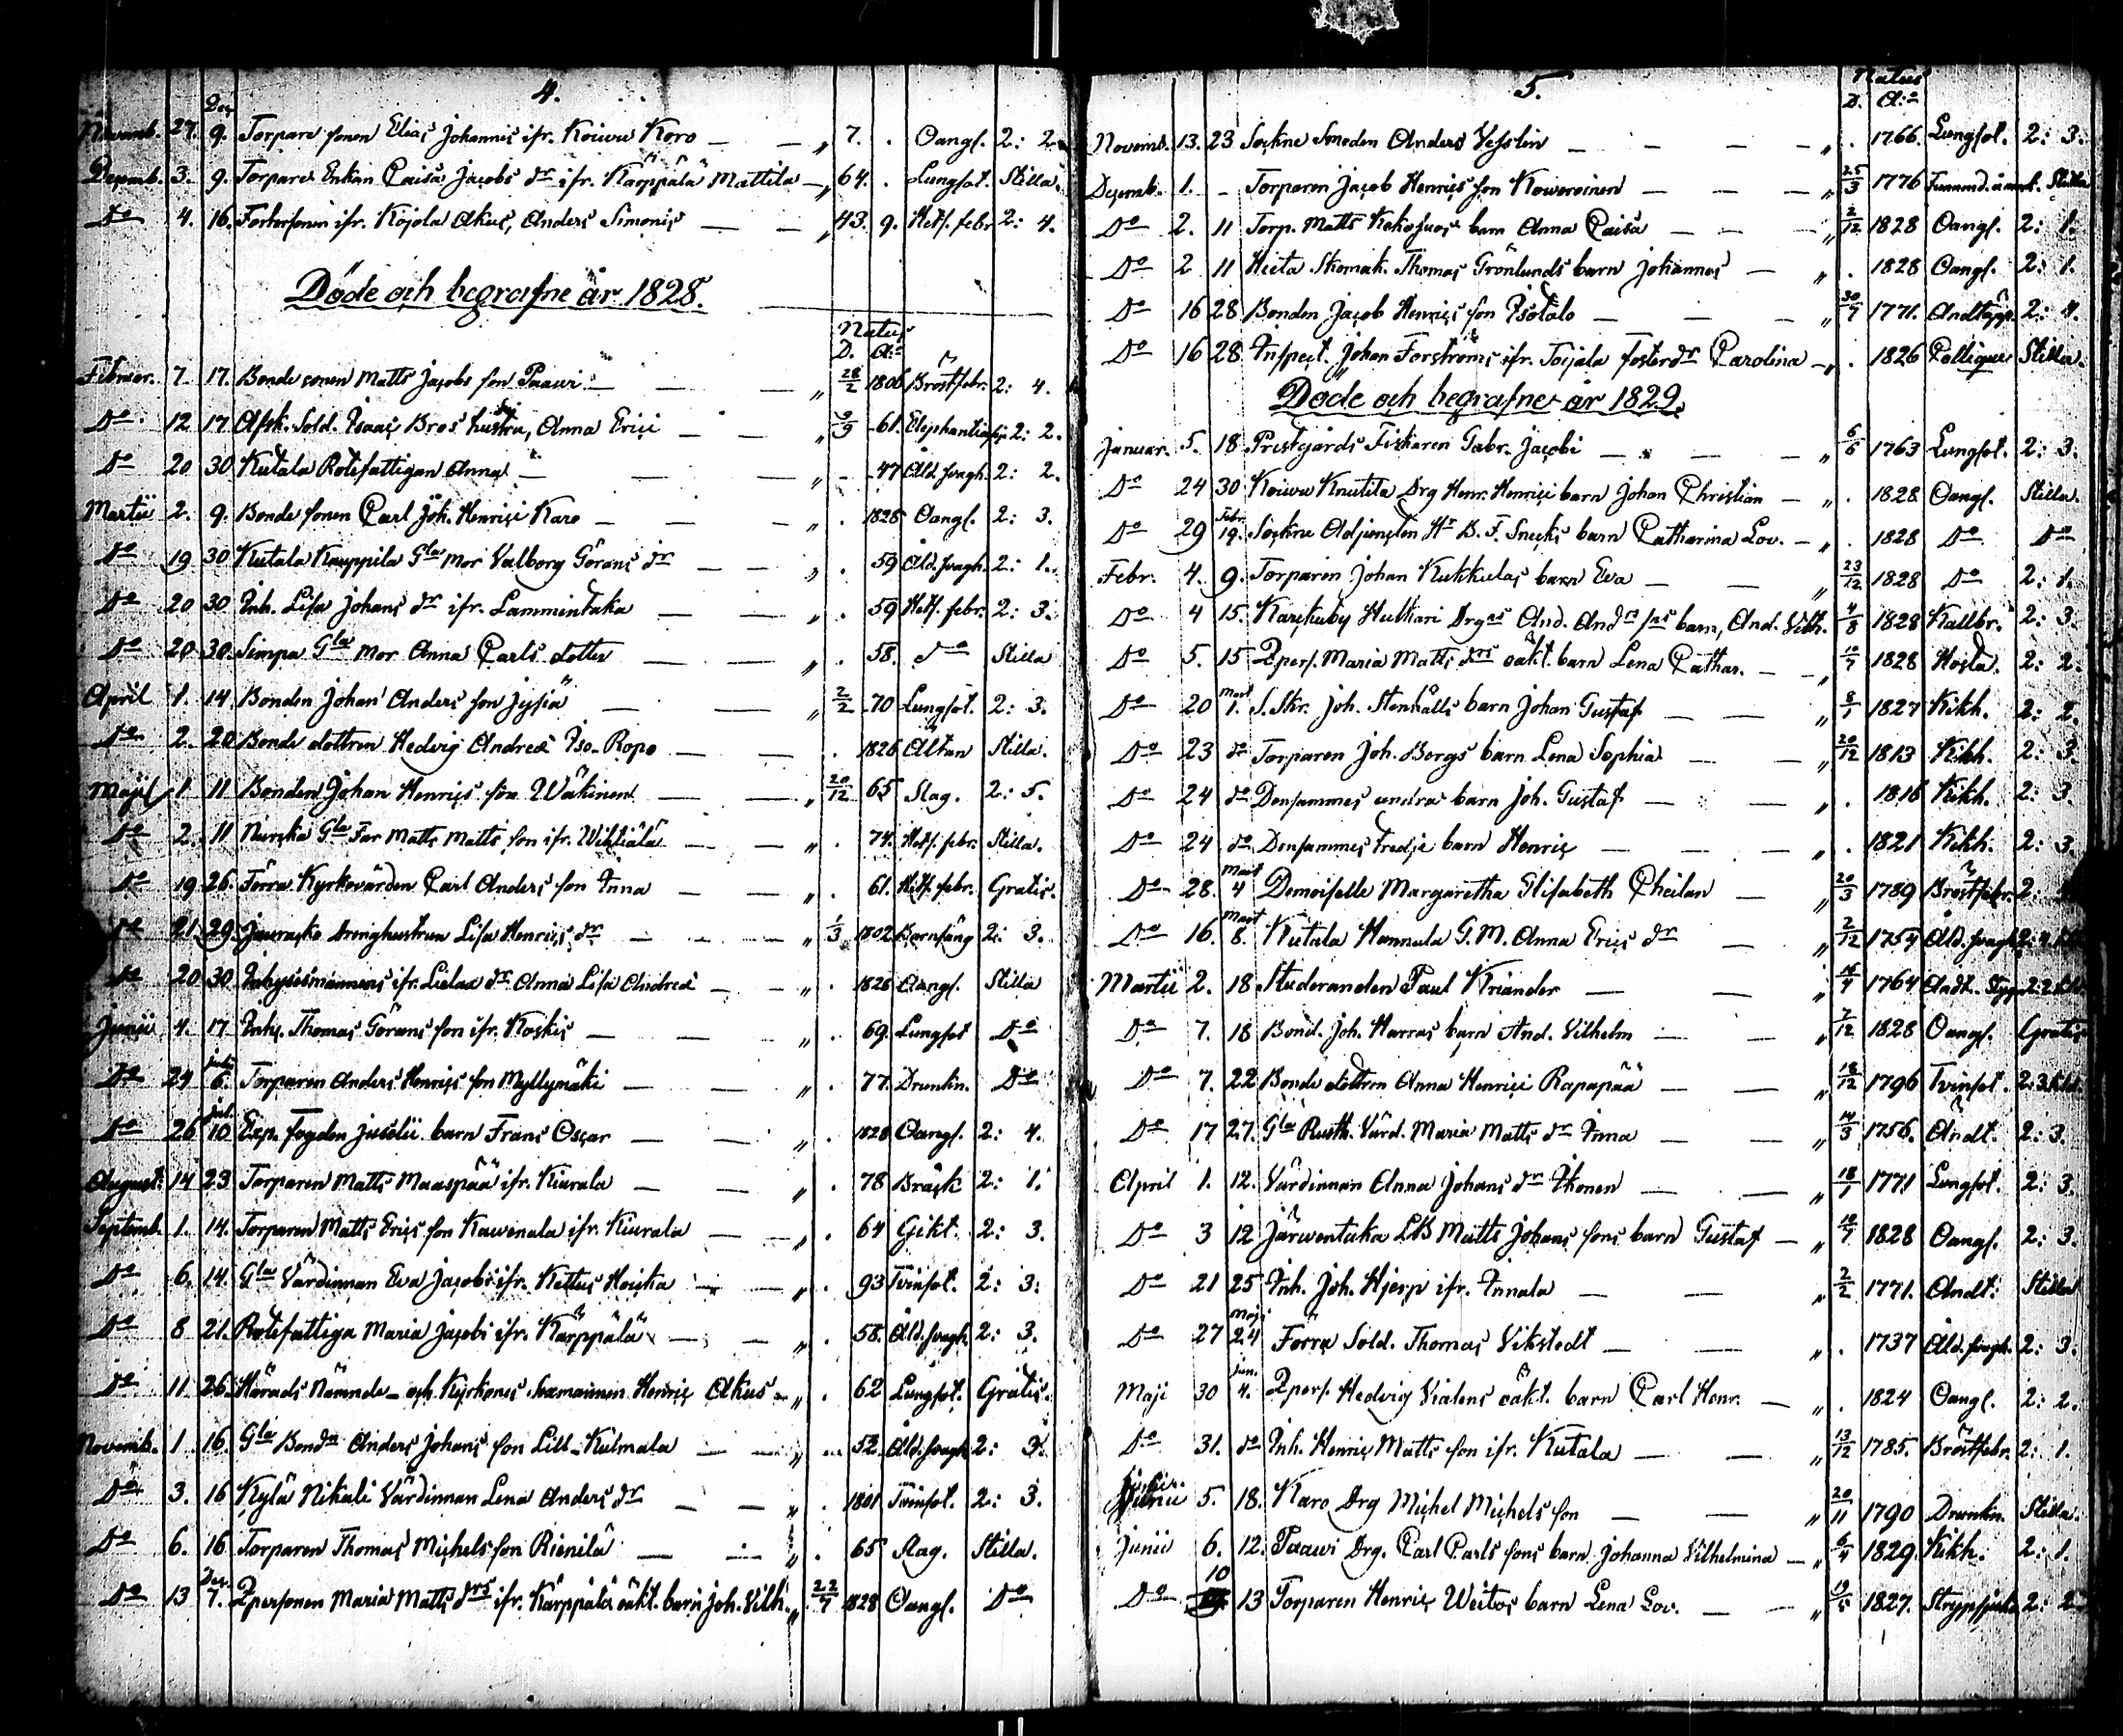 4.
Novemb. 27. Dec. 9. Torpare sonen Elias Johannis ifr. Koiwu Koro — — „ 7. . Oangf. 2: 2.
Decemb. 3. 9. Torpare Enkan Caisa Jacobs dr ifr. Karppälä Mattila — „ 64. . Lungsot. Stilla.
Do 4. 16. ifr. Kojola Akus, Anders Simonis — — „ 43. 9. Hetf. febr 2: 4.
Döde och begrafne år 1828.
Natus
D. A:o
Februar. 7. 17. Bonde sonen Matts Jacobs son Paawi — — „ 28/2 1806 Bröstfebr. 2: 4.
Do 12 17 Afsk. Sold. Isaac Bros hustru, Anna Erici — — „ 9/9 -61. Elephantiasis 2: 2.
Do 20 30 Kutala Rotefattigan Anna — — — „ - -47 Åld. svagh. 2: 2.
Martii 2. 9. Bonde sonen Carl Joh. Henrici Karo — — — „ . 1828 Oangf. 2: 3.
Do 19 30 Kutala Kauppila Gla Mor Valborg Görans dr — — „ . 59 Åld. svagh. 2: 1.
Do 20 30. Inh. Lisa Johans dr ifr. Lammintaka — — „ . 59 Hetf. febr. 2: 3.
Do 20 30. Simpa Gla Mor Anna Carls dotter — — „ . 58. do Stilla
April 1. 14. Bonden Johan Anders son Jysiä — — „ 2/2 -70 Lungsot. 2: 3.
Do 2. 20 Bonde dottren Hedvig Andreæ Iso-Ropo — — . 1826 Altan Stilla.
Maji 1 11 Bonden Johan Henrics son Wäkinen — — „ 20/12 65 Slag. 2: 5.
Do 2. 11 Nurska Gla Far Matts Matts son ifr. Wihtiälä — — „ . 74. Hetf. febr. Stilla.
Do 19 26. Förra Kyrkovärden Carl Anders son Inna — — „ . 61. Hetf. febr. Gratis.
Do 21 29. Jauracko Drenghustrun Lisa Henrics dr — — — „ 1/3 1802 Barnsäng 2: 3.
Do 20 30 Inhysesmannens ifr. Lielax dr Anna Lisa Andreæ — — „ . 1826 Oangf. Stilla
Junii 4. 17. Inhs. Thomas Görans son ifr. Koskis — — — „ . 69. Lungsot Do
Do 24 Julii 6. Torparen Anders Henrics son Myllymäki — — — „ . 77. Drunkn. Do
Do 26 Jul. 10 Exp. fogden Juselii barn Frans Oscar — — — „ . 1828 Oangf. 2: 4.
August. 14 23 Torparen Matts Maaspää ifr. Kiurala — — — „ . 78 Bråck 2: 1.
Septemb. 1. 14. Torparen Matts Erics son Kawenala ifr. Kiurala — — „ . 64 Gikt. 2: 3.
Do 6. 14. Gla Värdinnan Eva Jacobs ifr. Kettus Hoicka — — „ . 93 Tvinsot. 2: 3.
Do 8 21. Rotefattiga Maria Jacobi ifr. Karppälä — — „ . 58. Åld. svagh. 2: 3.
Do 11. 26. Härads Nämnde- och Kyrkones Sexmannen Henric Akus — „ . 62 Lungsot. Gratis.
Novemb. 1 16. Gla Bondn Anders Johans son Lill-Kulmala — — „ 52. Åld. svagh 2: 3.
Do 3. 16 Kylä Nikula Värdinnan Lena Anders dr — — „ . 1801 Tvinsot. 2: 3.
Do 6. 16 Torparen Thomas Michels son Rienilä — — „ . 65 Slag. Stilla.
Do 13 Dec. 7. Qpersonen Maria Matts drs ifr. Karppälä oäkt. barn Joh. Vilh. „ 22/7 1828 Oangf. Do
5.
Natus
D. A:o
Novemb. 13. 23 Sockne Smeden Anders Vesslin — — — — „ . 1766. Lungsot. 2: 3.
Decemb. 1. - Torparen Jacob Henrics son Koweroinen — — — „ 25/3 1776 Stilla
Do 2. 11 Torp. Matts Kekofuos barn Anna Caisa — — — „ 2/12 1828 Oangf. 2: 1.
Do 2 11 Hieta Skomak. Thomas Grönlunds barn Johannes — „ . 1828 Oangf. 2: 1.
Do 16 28 Bonden Jacob Henrics son Isotalo — — — „ 30/7 1771. Andtäpp. 2: 4.
Do 16 28. Inspect. Johan Forströms ifr. Toijala fosterdr Carolina — „ . 1826 Collique Stilla.
Döde och begrafne år 1829.
Januar. 5. 18 Prestgårds Fiskaren Gabr. Jacobi — — — — „ 6/6 1763 Lungsot. 2: 3.
Do 24 30 Koiwu Knutila Drg Henr. Henrici barn Johan Christian — „ . 1828 Oangf. Stilla.
Do 29 Febr. 19. Sockne Adjuncten Hr B. F. Snecks barn Catharina Lov. — „ . 1828 Do Do
Febr. 4. 9. Torparen Johan Kukkulas barn Eva — — „ 23/12 1828 Do 2: 1.
Do 4 15. Karskuby Huhkari Drgns And. Andrs sns barn, And. Vilh. 4/8 1828 Kallbr. 2: 3.
Do 5. 15 Qpers. Maria Matts drs oäkt. barn Lena Cathar. — — „ 10/7 1828 Hosta. 2: 2.
Do 20 Mart 1. S.Skr. Joh. Stenhälls barn Johan Gustaf — — „ 8/1 1827 Kikh. 2: 2.
Do 23 do Torparen Joh. Borgs barn Lena Sophia — — „ 20/12 1813 Kikh. 2: 3.
Do 24 do Densammes andra barn Joh. Gustaf — — „ . 1816 Kikh. 2: 3.
Do 24 do Densammes Tredje barn Henric — — — „ . 1821 Kikh. 2: 3.
Do 28. Mart 4 Demoiselle Margaretha Elisabeth Cheilan — „ 20/3 1789 Bröstfebr. 2:
Do 16. Mart 8. Kutala Hannula G. M. Anna Erics dr — „ 2/12 1754 Åld. svagh 2: 4.
Martii 2. 18 Studeranden Paul Kriander — — „ 15/4 1764 Andt.
Do 7. 18 Bond. Joh. Harras barn And. Vilhelm — — „ 7/12 1828 Oangf. Gratis
Do 7. 22 Bonde dottren Anna Henrici Rapapää — — „ 18/12 1796 Tvinsot. 2: 3.
Do 17 27. Gla Rusth. Värd. Maria Matts dr Inna — — „ 14/3 1756. Andt. 2: 3.
April 1. 12. Värdinnan Anna Johans dr Ikonen — — „ 18/1 1771 Lungsot. 2: 3.
Do 3 12 Järwentaka LB Matts Johans sons barn Gustaf — „ 10/7 1828 Oangf. 2: 3.
Do 21 25 Inh. Joh. Hjerp ifr. Innala — — „ 2/2 1771. Andt: Stilla
Do 27 Maji 24 Förra Sold. Thomas Vikstedt — — „ . 1737 Åld. svagh. 2: 3.
Maji 30 Jun. 4. Qpers. Hedvig Vialens oäkt. barn Carl Henr. — „ . 1824 Oangf. 2: 2.
Do 31. do Inh. Henric Matts son ifr. Kutala — — „ 13/12 1785. Bröstfebr. 2: 1.
Junii 5. 18. Karo Drg Michel Michels son — — „ 20/11 1790 Drunkn. Stilla.
Junii 6. 12. Paawi Drg. Carl Carls sons barn Johanna Vilhelmina — „ 6/4 1829. Kikh. 2: 1.
Do 10 13 Torparen Henric Weitos barn Lena Lov. — — „ 19/5 1827. Strypsjuka 2: 2